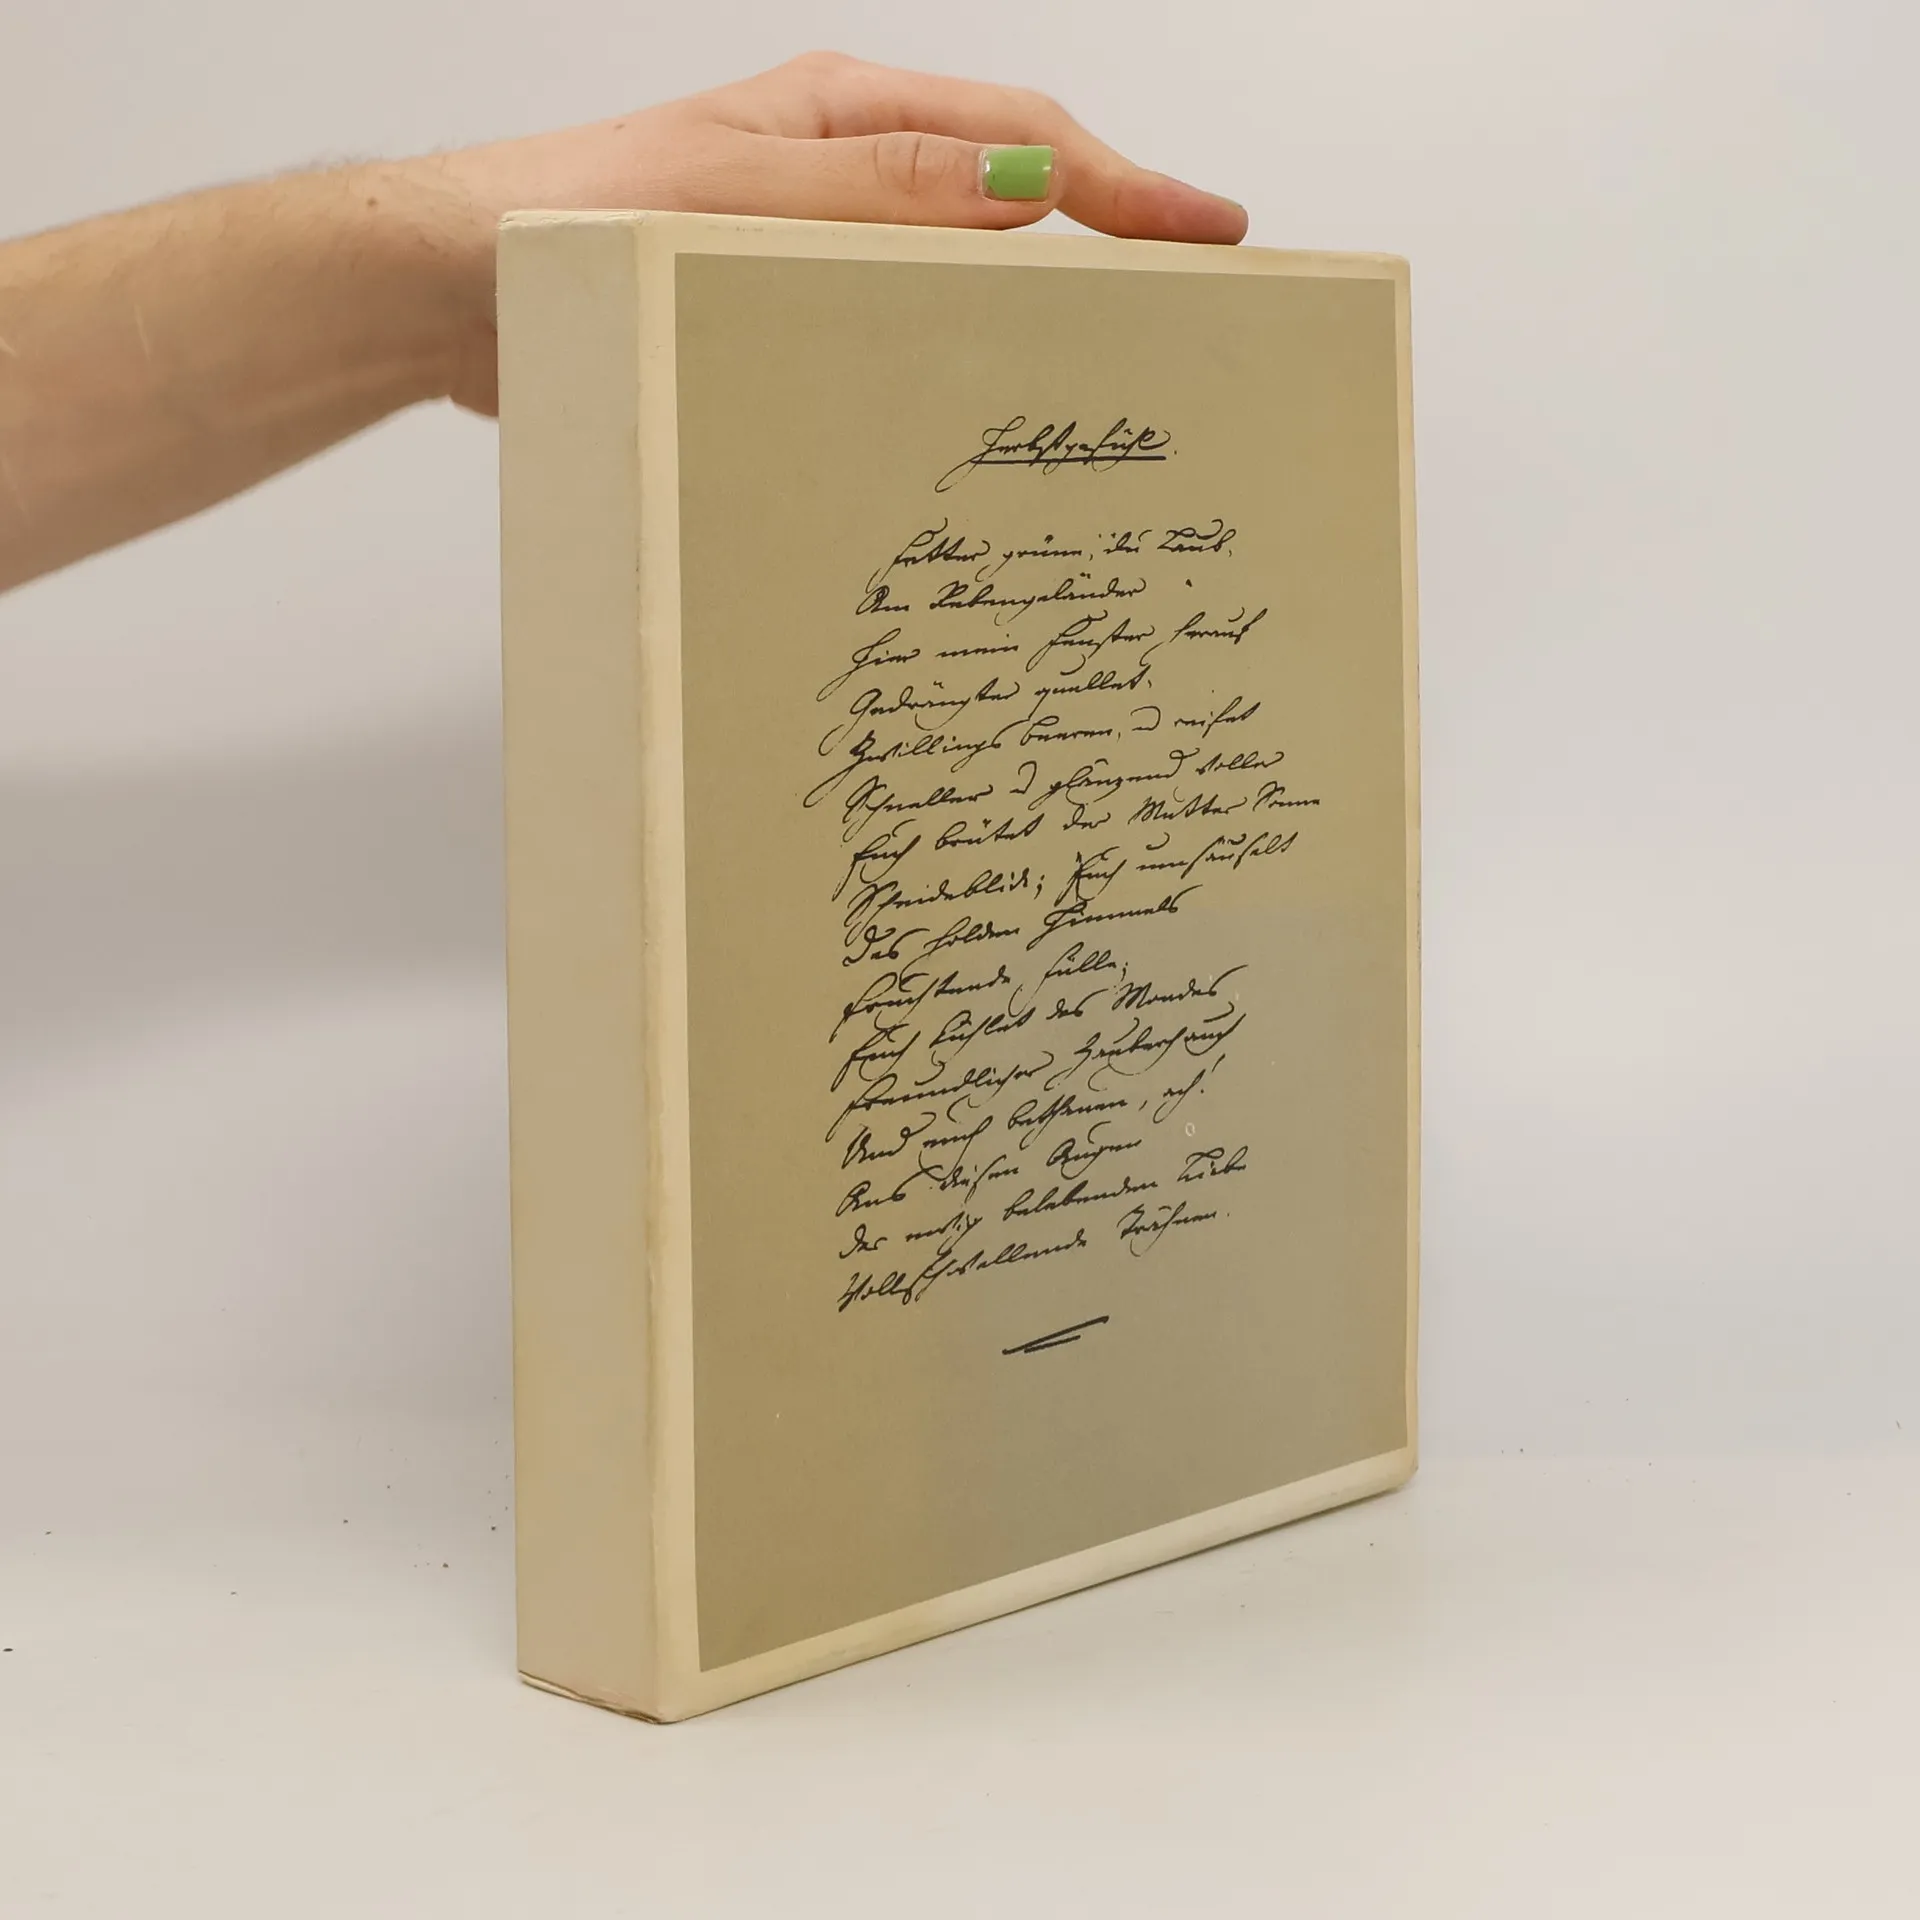 Herbstgefühl.
Fetter grüne, du Laub,
Am Rebengeländer
Hier mein Fenster herauf
Gedrängter quellet,
Zwillings beeren, u reifet
Schneller u glänzend voller
Euch brütet der Mutter Sonne
Scheideblick; Euch umsäuselt
Des holden Himmels
Fruchtende Fülle;
Euch kühlet des Mondes
Freundlicher Zauberhauch
Und euch bethauen, ach!
Aus diesen Augen
Der ewig belebenden Liebe
Vollschwellende Trähnen.